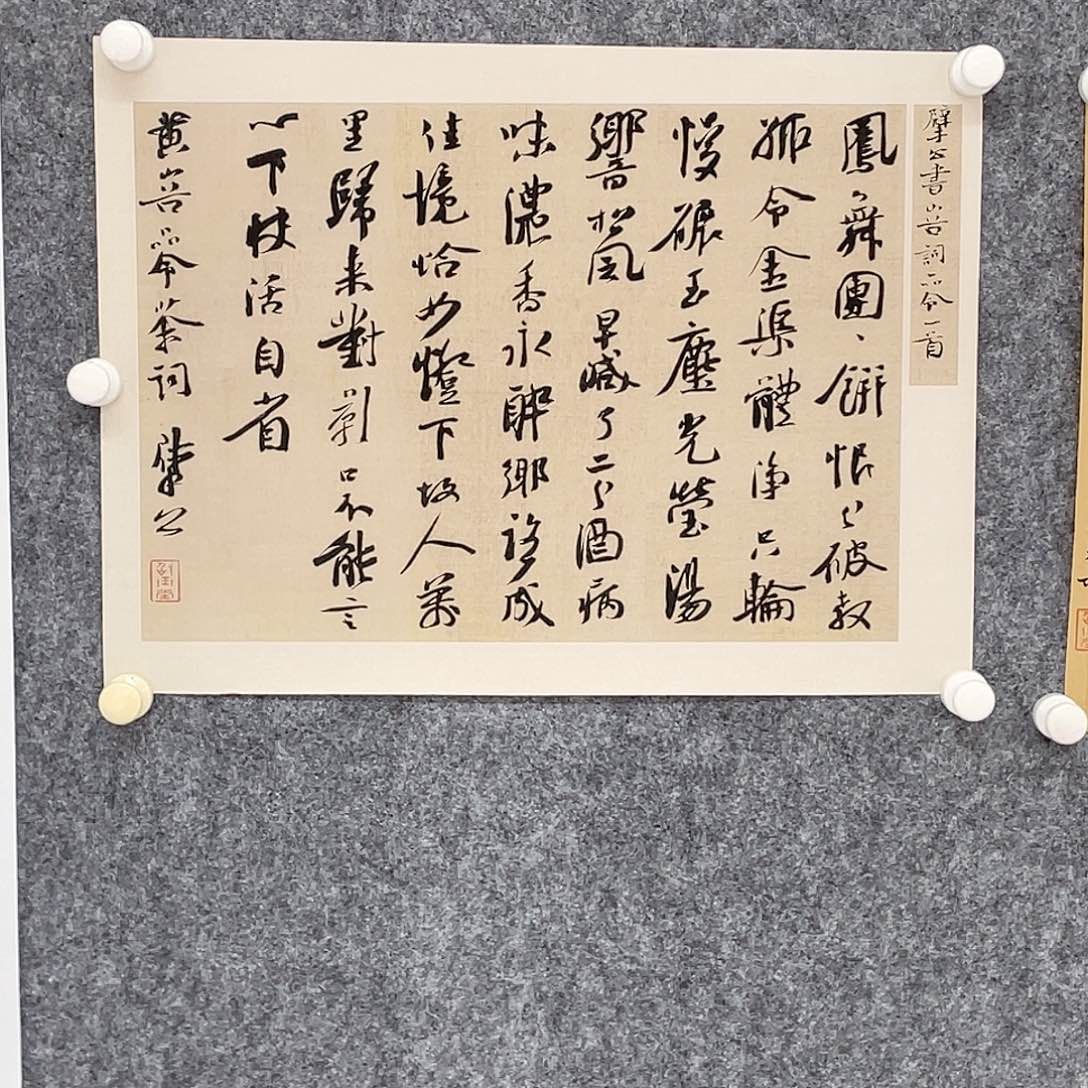 擘公書山谷詞品令一首
鳳〻舞團〻餅恨分破教
孤令金渠體淨只輪
慢碾玉塵光瑩湯
響松風早減了二分酒病
味濃香永醉鄉路成
佳境恰如燈下故人萬
里歸來對影口不能言
心下快活自省
黃谷品令茶詞 擘公